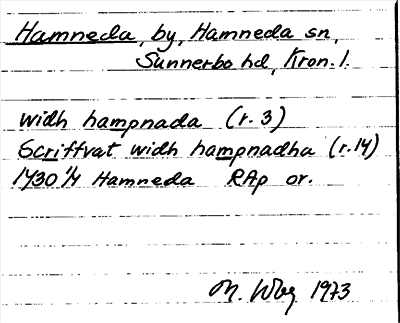 Hamneda, by, Hamneda sn,
Sunnerbo hd, Kron. l.
widh hampnada (r. 3)
Scriffvat widh hampnadha (r. 14)
1430 1/4 Hamneda RAp or.
M. 1973